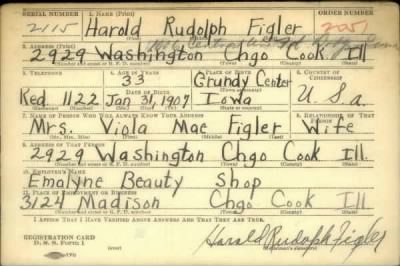 SERIAL NUMBER 1. NAME (Print) ORDER NUMBER
2115 Harold Rudolph Figler
2. ADDRESS (Print)
2929 Washington Chgo Cook Ill
(Number and street or R. F. D. number) (Town) (County) (State)
3. TELEPHONE 4. AGE IN YEARS 5. PLACE OF BIRTH 6. COUNTRY OF CITIZENSHIP
33 Grundy Center
DATE OF BIRTH
Red 1122 Jan 31, 1907 Iowa U. S. a.
7. NAME OF PERSON WHO WILL ALWAYS KNOW YOUR ADDRESS 8. RELATIONSHIP OF THAT PERSON
Mrs. Viola Mae Figler Wife
9. ADDRESS OF THAT PERSON
2929 Washington Chgo Cook Ill.
(Number and street or R. F. D. number) (Town) (County) (State)
10. EMPLOYER'S NAME
Emalyne Beauty Shop
11. PLACE OF EMPLOYMENT OR BUSINESS
3124 Madison Chgo Cook Ill.
(Number and street or R. F. D. number) (Town) (County) (State)
I AFFIRM THAT I HAVE VERIFIED ABOVE ANSWERS AND THAT THEY ARE TRUE.
REGISTRATION CARD
D. S. S. Form 1
Harold Rudolph Figler